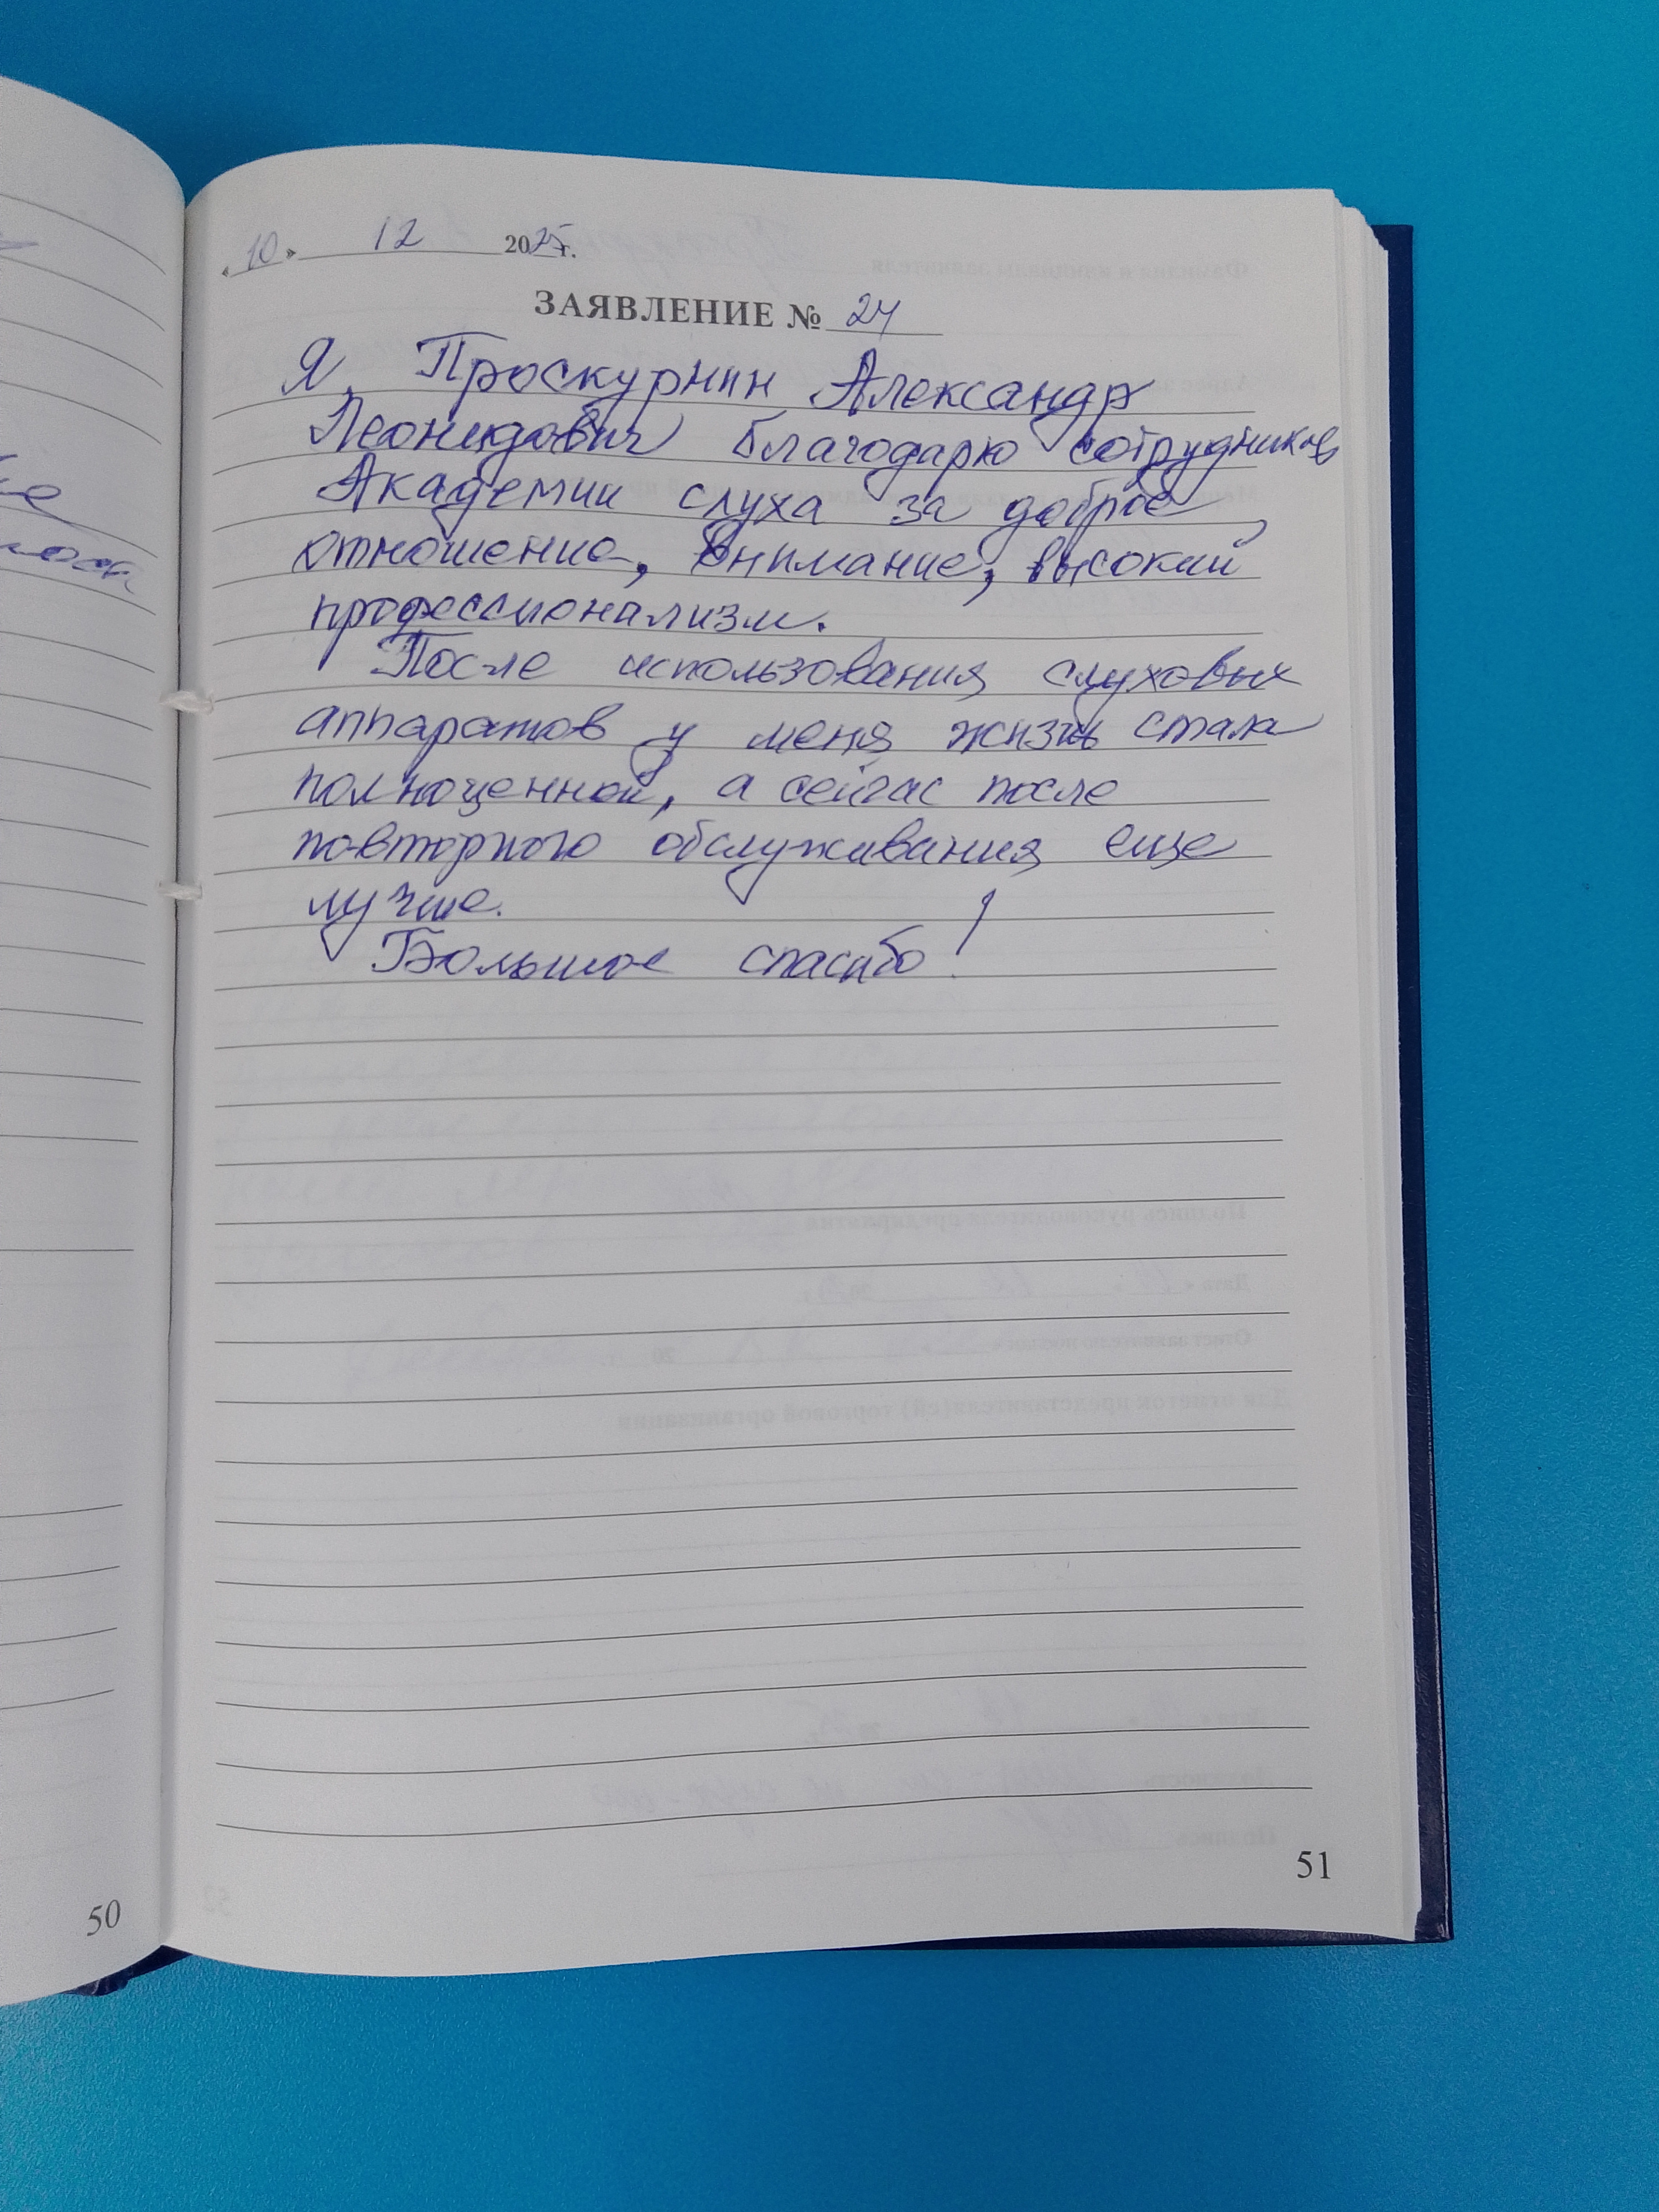 « 10 » 12 2025г.
ЗАЯВЛЕНИЕ № 24
Я, Проскурнин Александр
Леонидович благодарю сотрудников
Академии слуха за доброе
отношение, внимание, высокий
профессионализм.
После использования слуховых
аппаратов у меня жизнь стала
полноценной, а сейчас после
повторного обслуживания еще
лучше.
Большое спасибо!
51
50